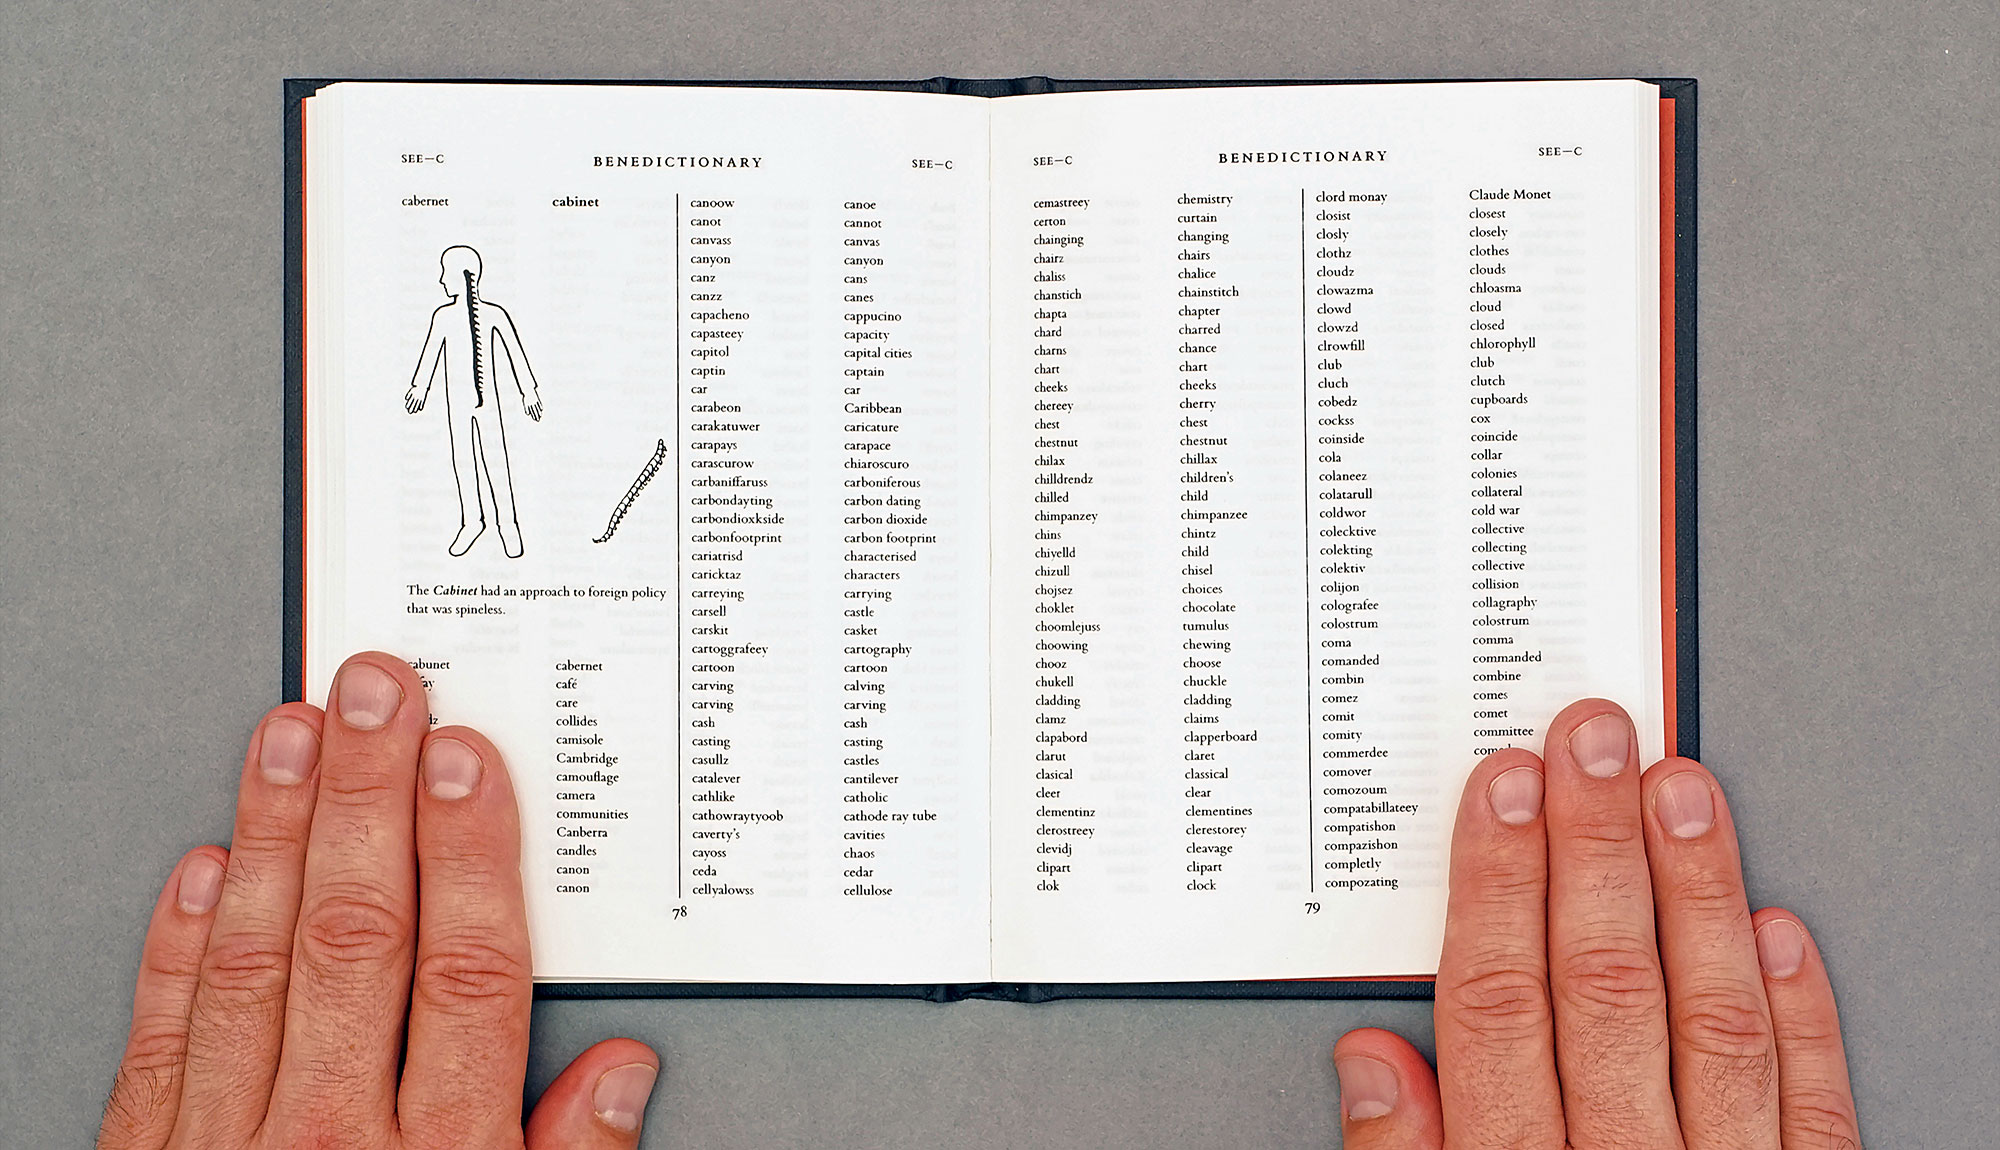 SEE—C BENEDICTIONARY SEE—C
cabernet cabinet
The Cabinet had an approach to foreign policy
that was spineless.
cabunet cabernet
café
care
collides
camisole
Cambridge
camouflage
camera
communities
Canberra
candles
canon
canon
canoow canoe
canot cannot
canvass canvas
canyon canyon
canz cans
canzz canes
capacheno cappucino
capasteey capacity
capitol capital cities
captin captain
car car
carabeon Caribbean
carakatuwer caricature
carapays carapace
carascurow chiaroscuro
carbaniffaruss carboniferous
carbondayting carbon dating
carbondioxkside carbon dioxide
carbonfootprint carbon footprint
cariatrisd characterised
caricktaz characters
carreying carrying
carsell castle
carskit casket
cartoggrafeey cartography
cartoon cartoon
carving calving
carving carving
cash cash
casting casting
casullz castles
catalever cantilever
cathlike catholic
cathowraytyoob cathode ray tube
caverty's cavities
cayoss chaos
ceda cedar
cellyalowss cellulose
78
SEE—C BENEDICTIONARY SEE—C
cemastreey chemistry
certon curtain
chainging changing
chairz chairs
chaliss chalice
chanstich chainstitch
chapta chapter
chard charred
charns chance
chart chart
cheeks cheeks
chereey cherry
chest chest
chestnut chestnut
chilax chillax
chilldrendz children's
chilled child
chimpanzey chimpanzee
chins chintz
chiyelld child
chizull chisel
chojsez choices
choklet chocolate
choomlejuss tumulus
choowing chewing
chooz choose
chukell chuckle
cladding cladding
clamz claims
clapabord clapperboard
clarut claret
clasical classical
cleer clear
clementinz clementines
clerostreey clerestorey
clevidj cleavage
clipart clipart
clok clock
clord monay Claude Monet
closist closest
closly closely
clothz clothes
cloudz clouds
clowazma chloasma
clowd cloud
clowzd closed
clrowfill chlorophyll
club club
cluch clutch
cobedz cupboards
cockss cox
coinside coincide
cola collar
colaneez colonies
colatarull collateral
coldwor cold war
colecktive collective
colekting collecting
colektiv collective
colijon collision
colografee collagraphy
colostrum colostrum
coma comma
comanded commanded
combin combine
comez comes
comit comet
comity committee
commerdee
comover
comozoum
compatabillateey
compatishon
compazishon
completly
compozating
79